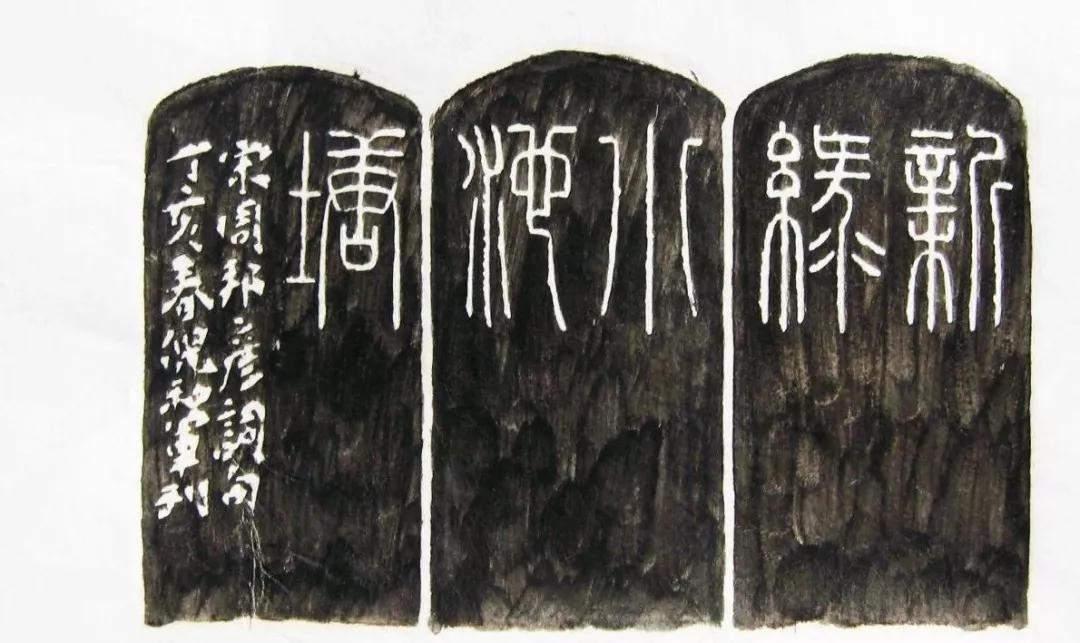 新
綠
小
池
塘
宋周邦彥詞句
丁亥春倪和軍刊